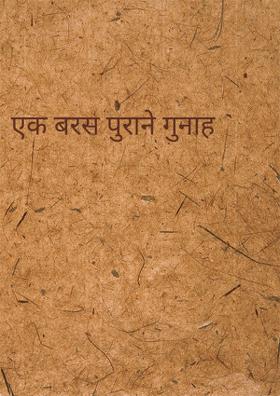 एक बरस पुराने गुनाह